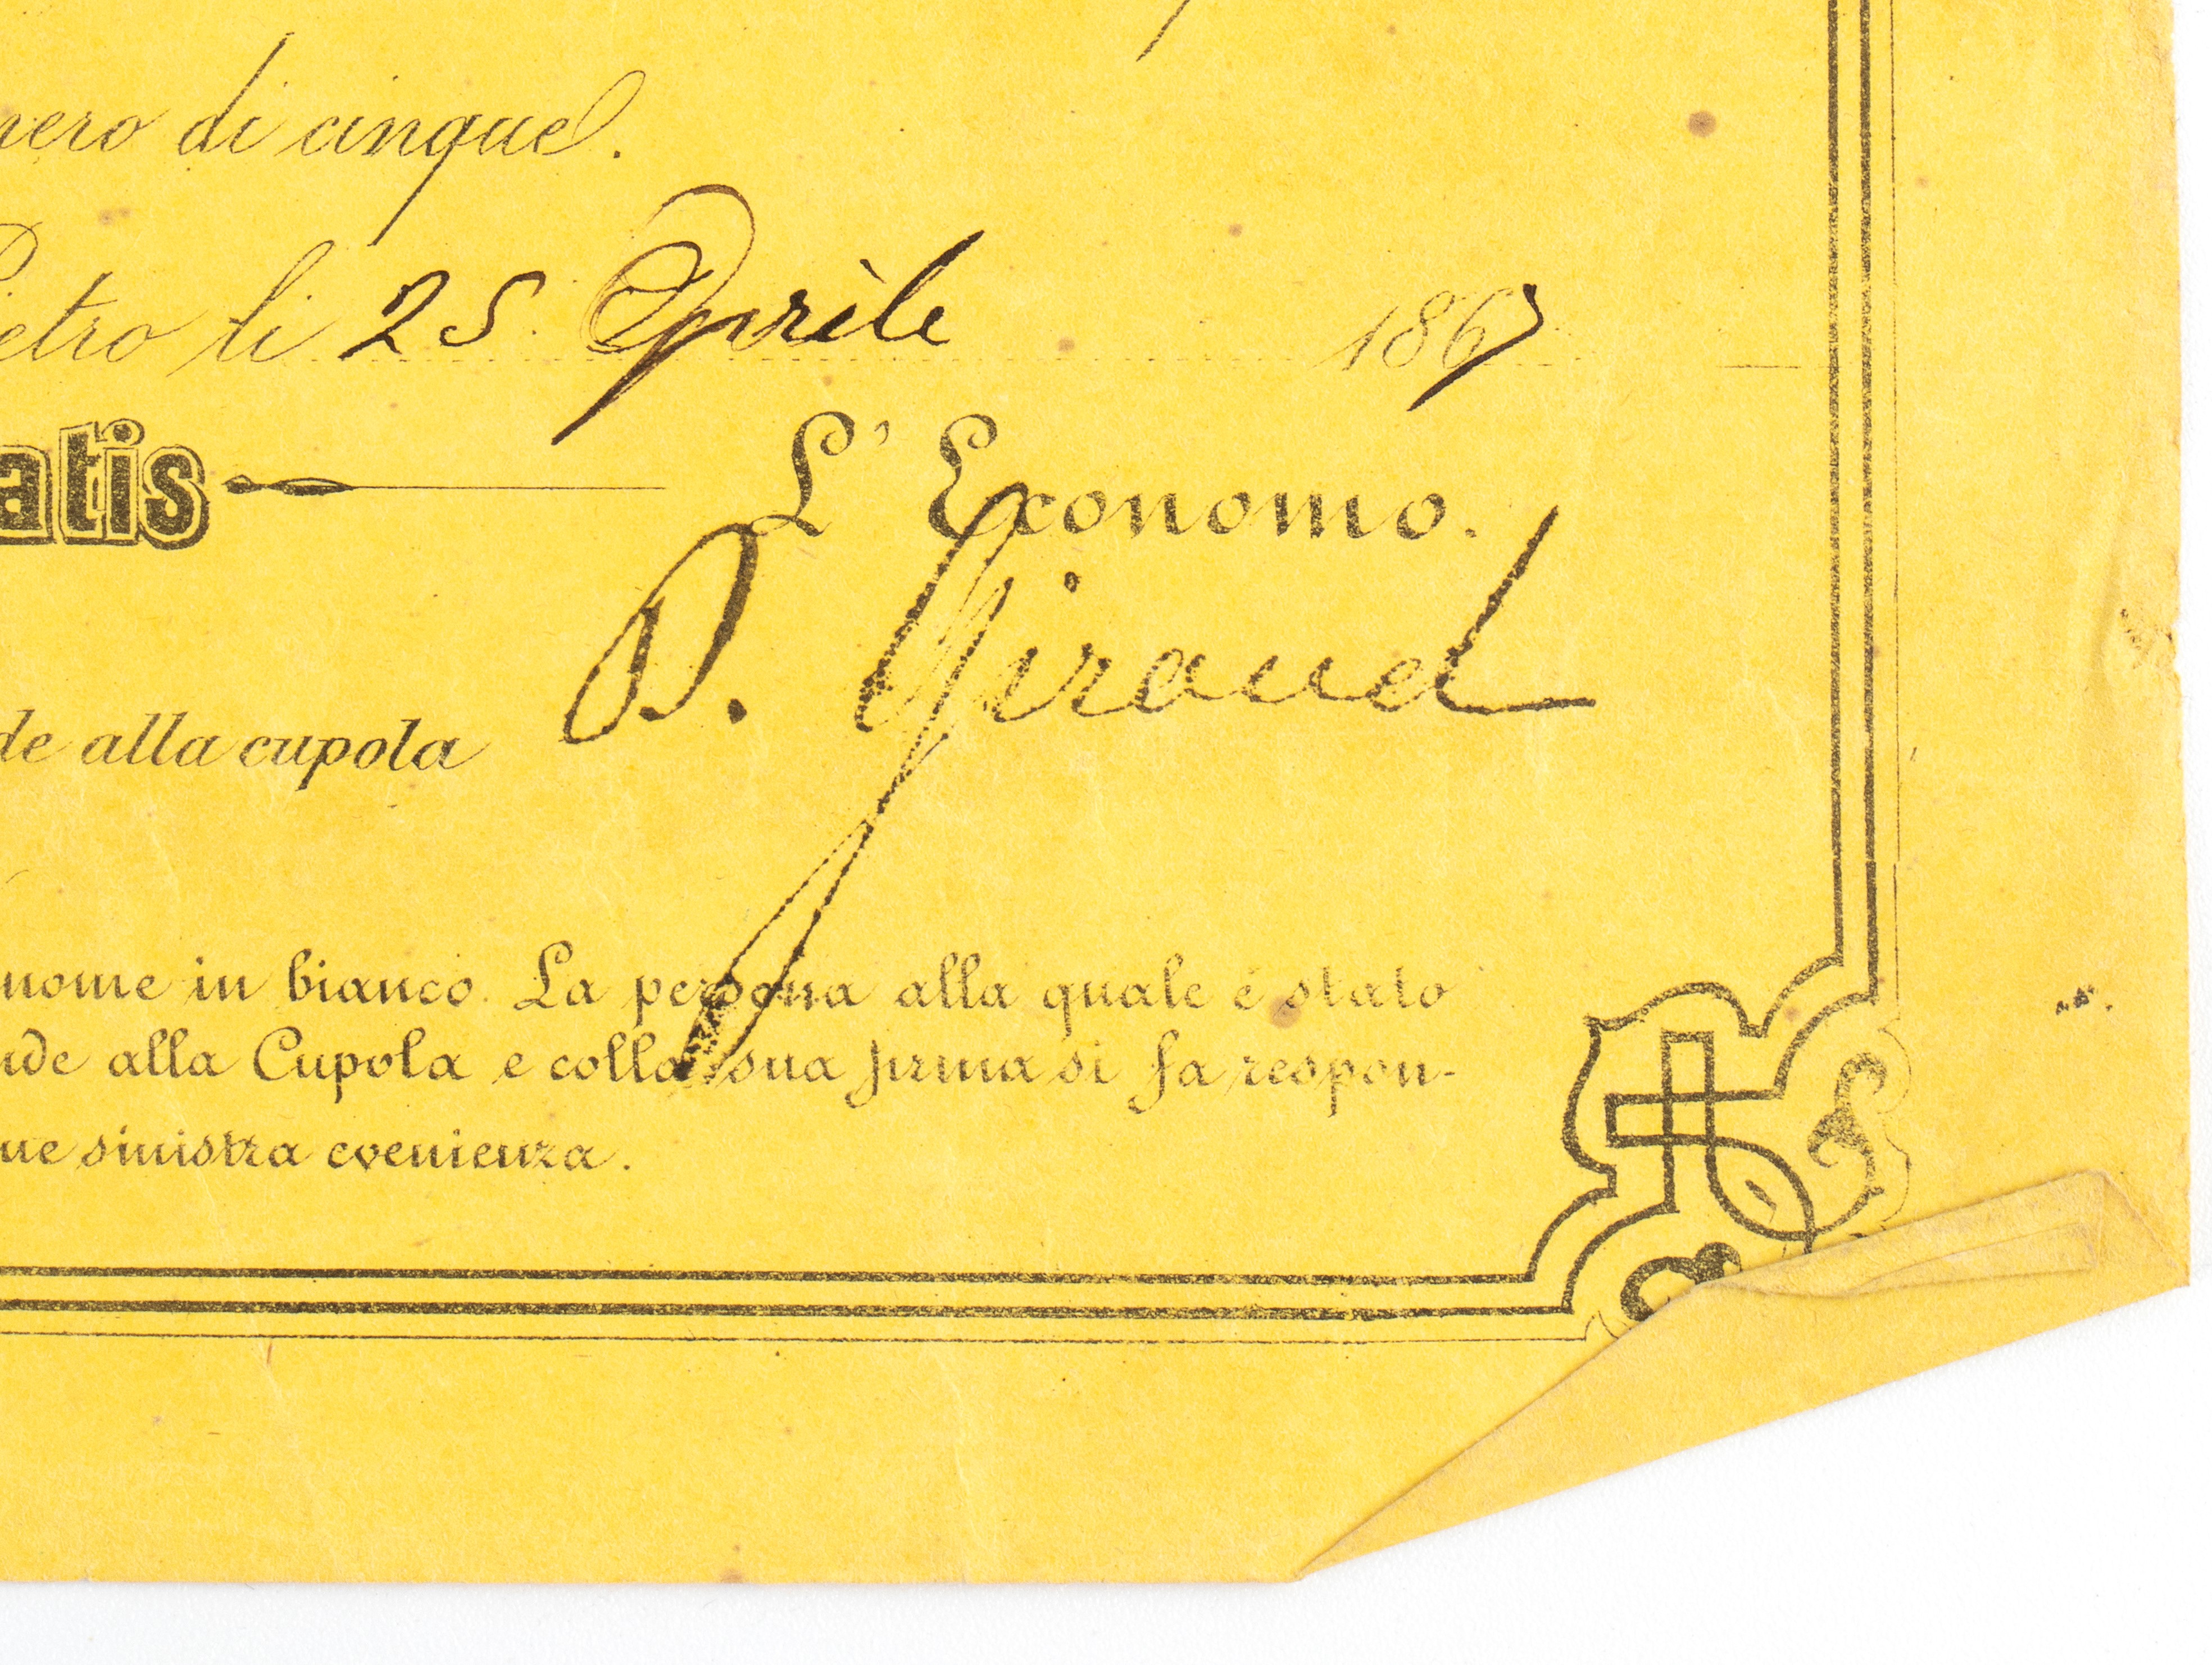 nero di cinque.
Pietro li 25 Aprile 1867
atis
L' Economo.
D. Giraud
de alla cupola
nome in bianco. La persona alla quale é stato
nde alla Cupola e colla sua firma si fa respon-
ue sinistra evenienza.